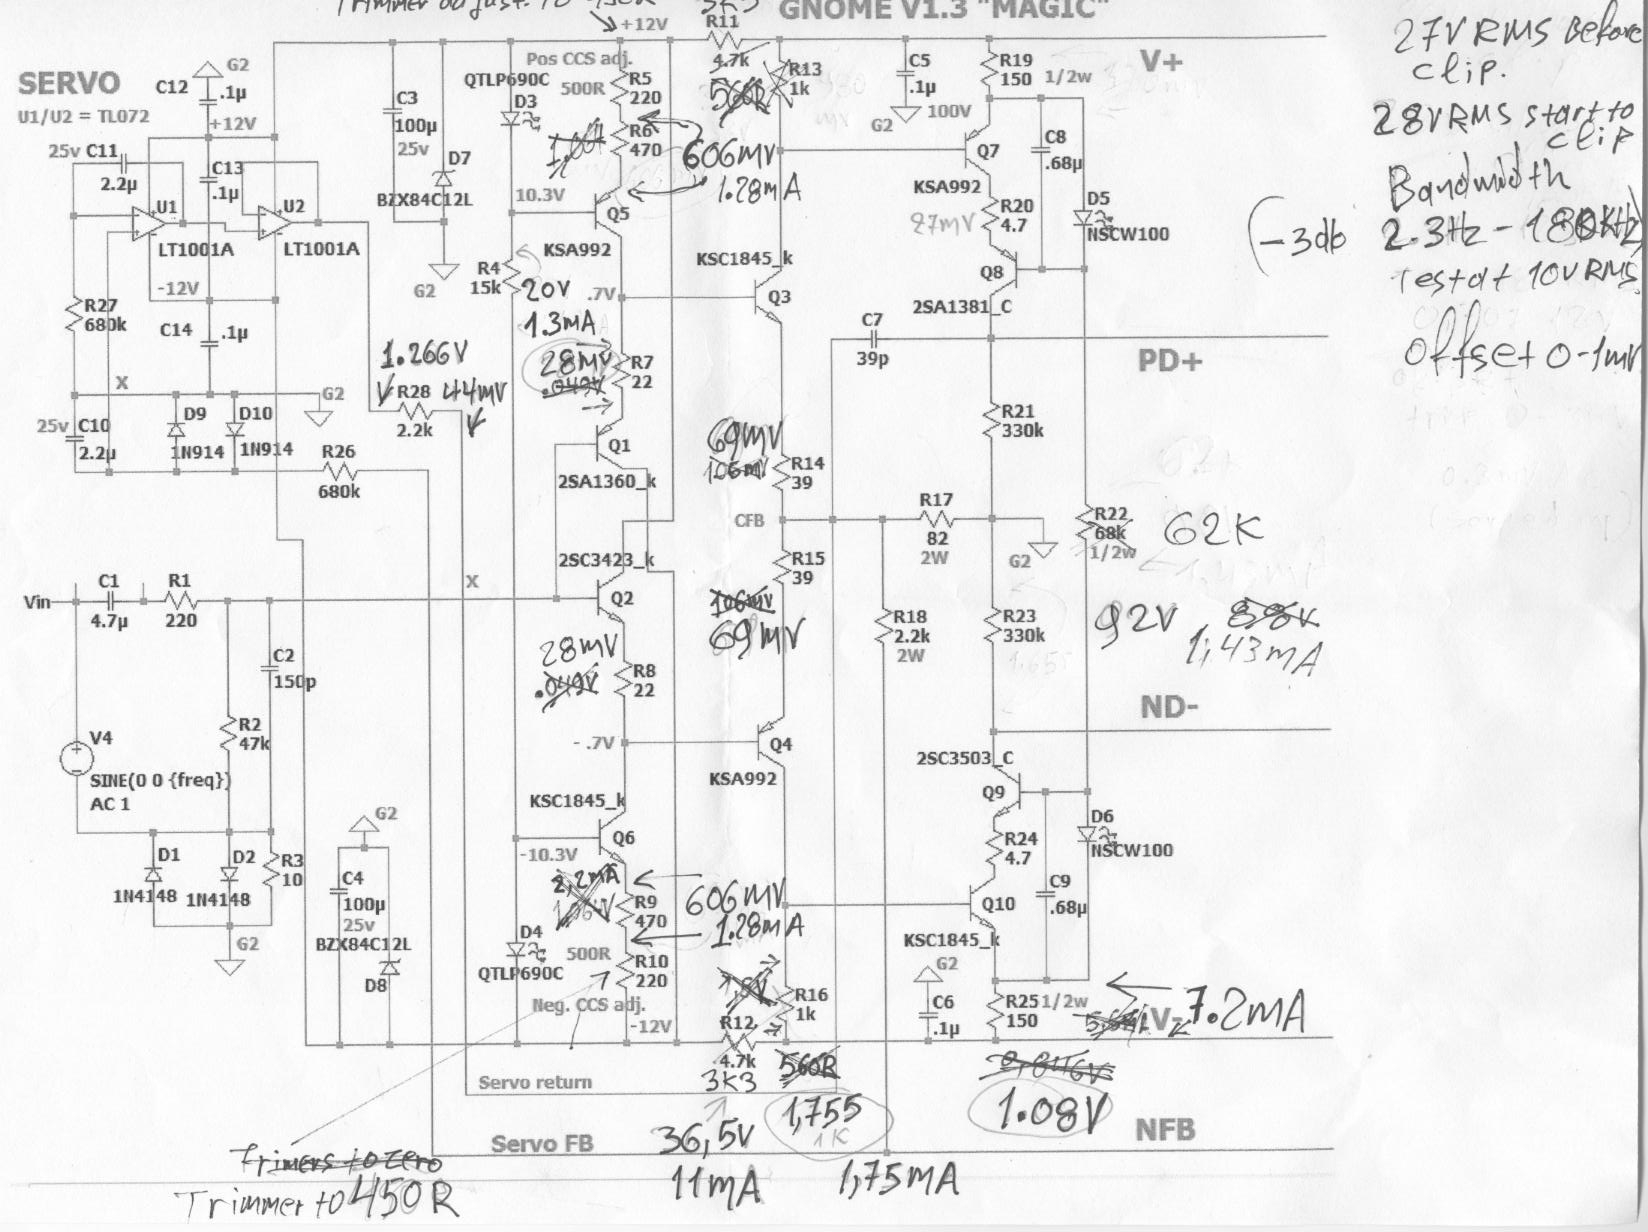 Trimmer adjust. to 450R
3K3
GNOME V1.3 "MAGIC"
+12V
R11
4.7k
560R
27V RMS Before
clip.
28V RMS start to
clip
Bandwidth
-3db 2.3Hz - 180KHz
Test at 10V RMS.
Offset 0-1mv
SERVO
U1/U2 = TL072
C12
.1µ
G2
+12V
25v C11
2.2µ
C13
.1µ
U1
LT1001A
U2
LT1001A
-12V
R27
680k
C14
.1µ
X
G2
25v C10
2.2µ
D9
1N914
D10
1N914
R26
680k
C3
100µ
25v
D7
BZX84C12L
G2
QTLP690C
D3
Pos CCS adj.
500R
R5
220
R6
470
606mV
1.28mA
10.3V
Q5
KSA992
R4
15k
20V
1.3mA
.7V
28mV
.049V
R7
22
1.266V
R28
2.2k
44mV
Q1
2SA1360_k
R13
1k
C5
.1µ
G2
100V
R19
150
1/2w
V+
Q7
KSA992
C8
.68µ
87mV
R20
4.7
D5
NSCW100
KSC1845_k
Q3
Q8
2SA1381_C
C7
39p
PD+
R21
330k
69mV
106mV
R14
39
CFB
R17
82
2W
G2
R22
68k
1/2w
62K
R15
39
106mV
69mV
R18
2.2k
2W
R23
330k
92V
88V
1,43mA
ND-
Vin
C1
4.7µ
R1
220
X
2SC3423_k
Q2
28mV
.049V
R8
22
C2
150p
R2
47k
V4
SINE(0 0 {freq})
AC 1
- .7V
Q4
KSA992
2SC3503_C
Q9
D6
NSCW100
R24
4.7
C9
.68µ
Q10
KSC1845_k
KSC1845_k
Q6
-10.3V
2,2mA
R9
470
606mV
1.28mA
D1
1N4148
D2
1N4148
R3
10
G2
G2
C4
100µ
25v
BZX84C12L
D8
D4
QTLP690C
500R
R10
220
Neg. CCS adj.
-12V
R16
1k
R12
4.7k
3K3
560R
G2
C6
.1µ
R25
1/2w
150
V-
7.2mA
1.08V
Servo return
Servo FB
NFB
36,5V
11mA
1,755
1K
1,75mA
Trimers to zero
Trimmer to 450R